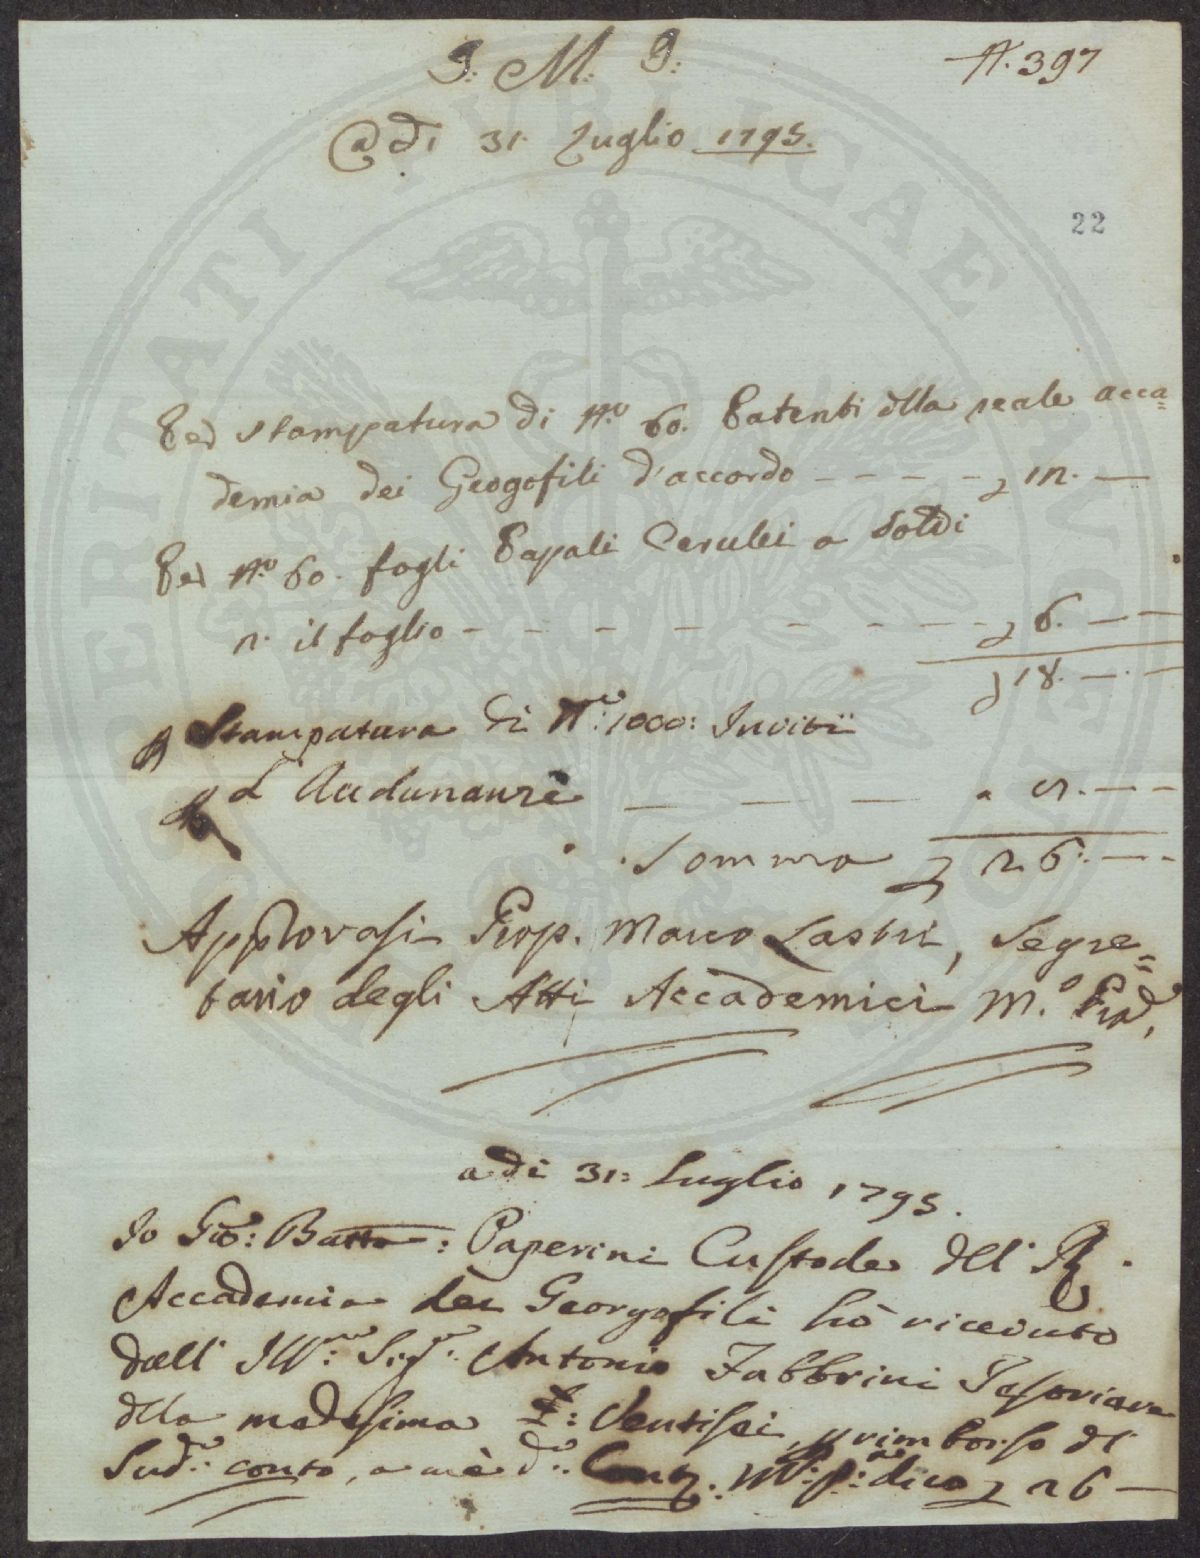 G: M: G:
N. 397
@ dì 31 Luglio 1795.
22
Per stampatura di N.o 60. Patenti della reale acca=
demia dei Geogofili d'accordo - - - - £ 12. —
Per N.o 60. fogli Papali Cerulei a soldi
2. il foglio - - - - - - - - £ 6. — —
£ 18. — —
P Stampatura di N.o: 1000: Inviti
P L'Audunanze — — — " 8. — —
Somma £ 26. — —
Approvasi Prop. Marco Lastri, Segre=
tario degli Atti Accademici M.o P.
a dì 31: Luglio 1795.
Io Gio: Batta: Paperini Custode dell' R.
Accademia dei Georgofili hò ricevuto
dall' Ill.mo: Sig.r: Antonio Fabbrini Tesoriere
della medesima £: Ventisei, p rimborso del
Sud.o: conto, a mè d.o: Cont. M.o: p.: dico £ 26 —